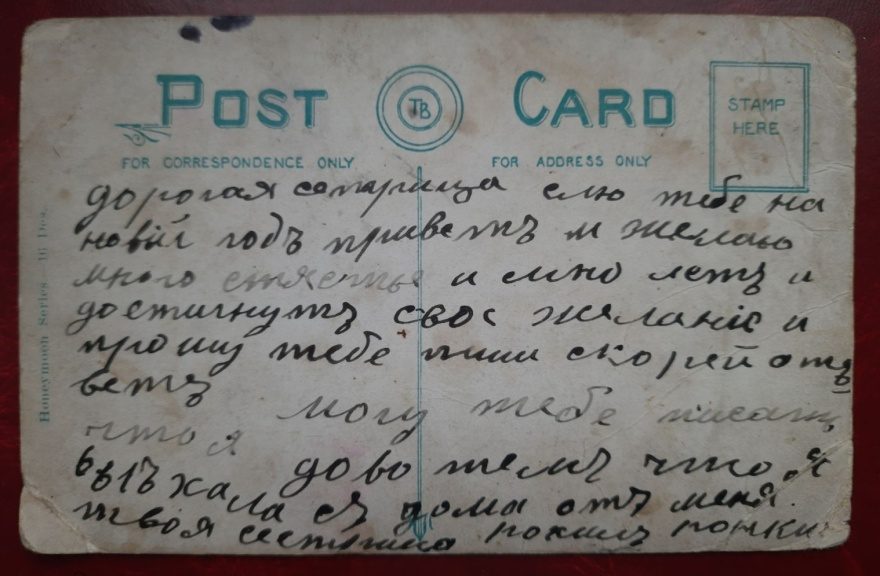 POST TB CARD
STAMP
HERE
FOR CORRESPONDENCE ONLY FOR ADDRESS ONLY
Honeymoon Series. 16 Des.
дорогая сетрица слю тебе на
новій годъ приветъ и желаю
много и мно летъ и
достигнутъ свое желаніе и
прошу тебе пиши скорей отъ
ветъ
могу тебе писать
что я
довотелъ что я
съ дома отъ меня
твоя